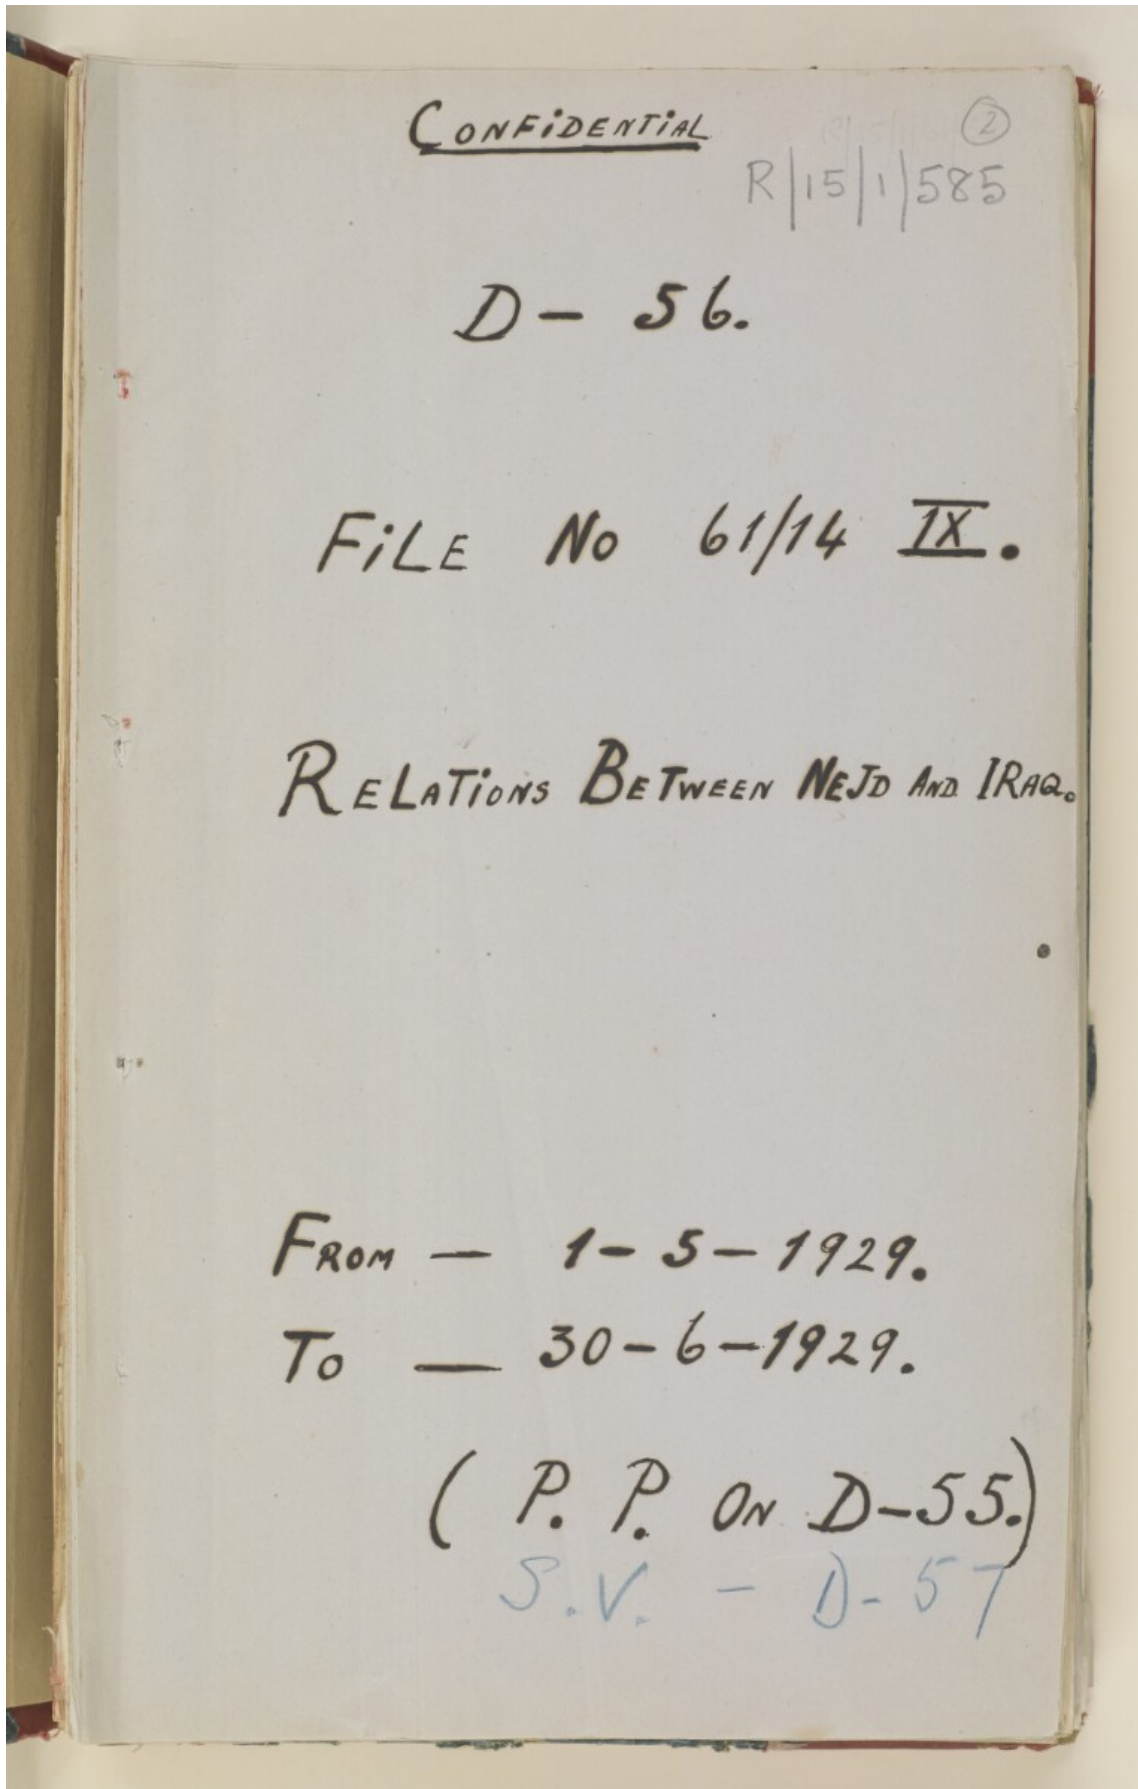 CONFIDENTIAL
2
R/15/1/585
D- 56.
FILE No 61/14 IX.
RELATIONS BETWEEN NEJD AND IRAQ.
FROM — 1-5-1929.
TO — 30-6-1929.
( P. P. ON D-55.)
S.V. - D-57